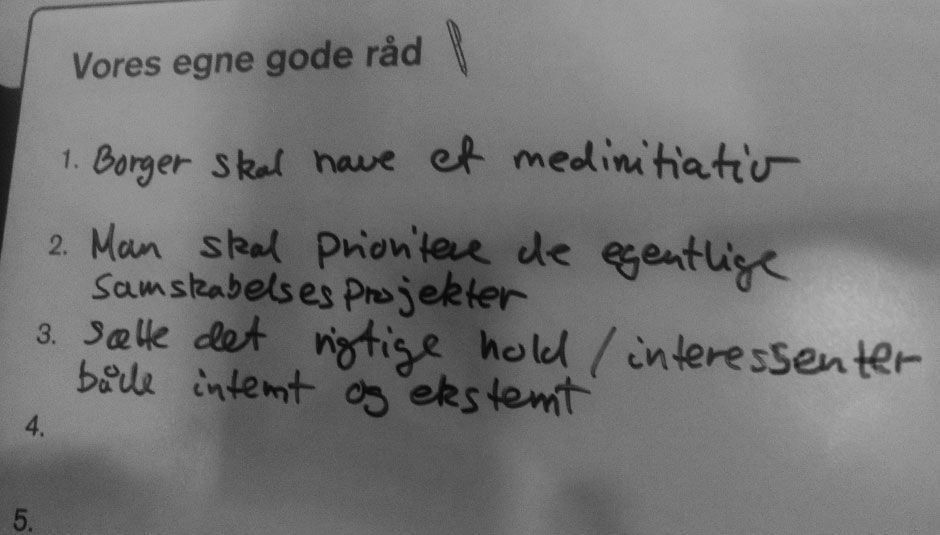 Vores egne gode råd
1. Borger skal have et medinitiativ
2. Man skal prioritere de egentlige
Samskabelsesprojekter
3. Sætte det rigtige hold / interessenter
både internt og eksternt
4.
5.